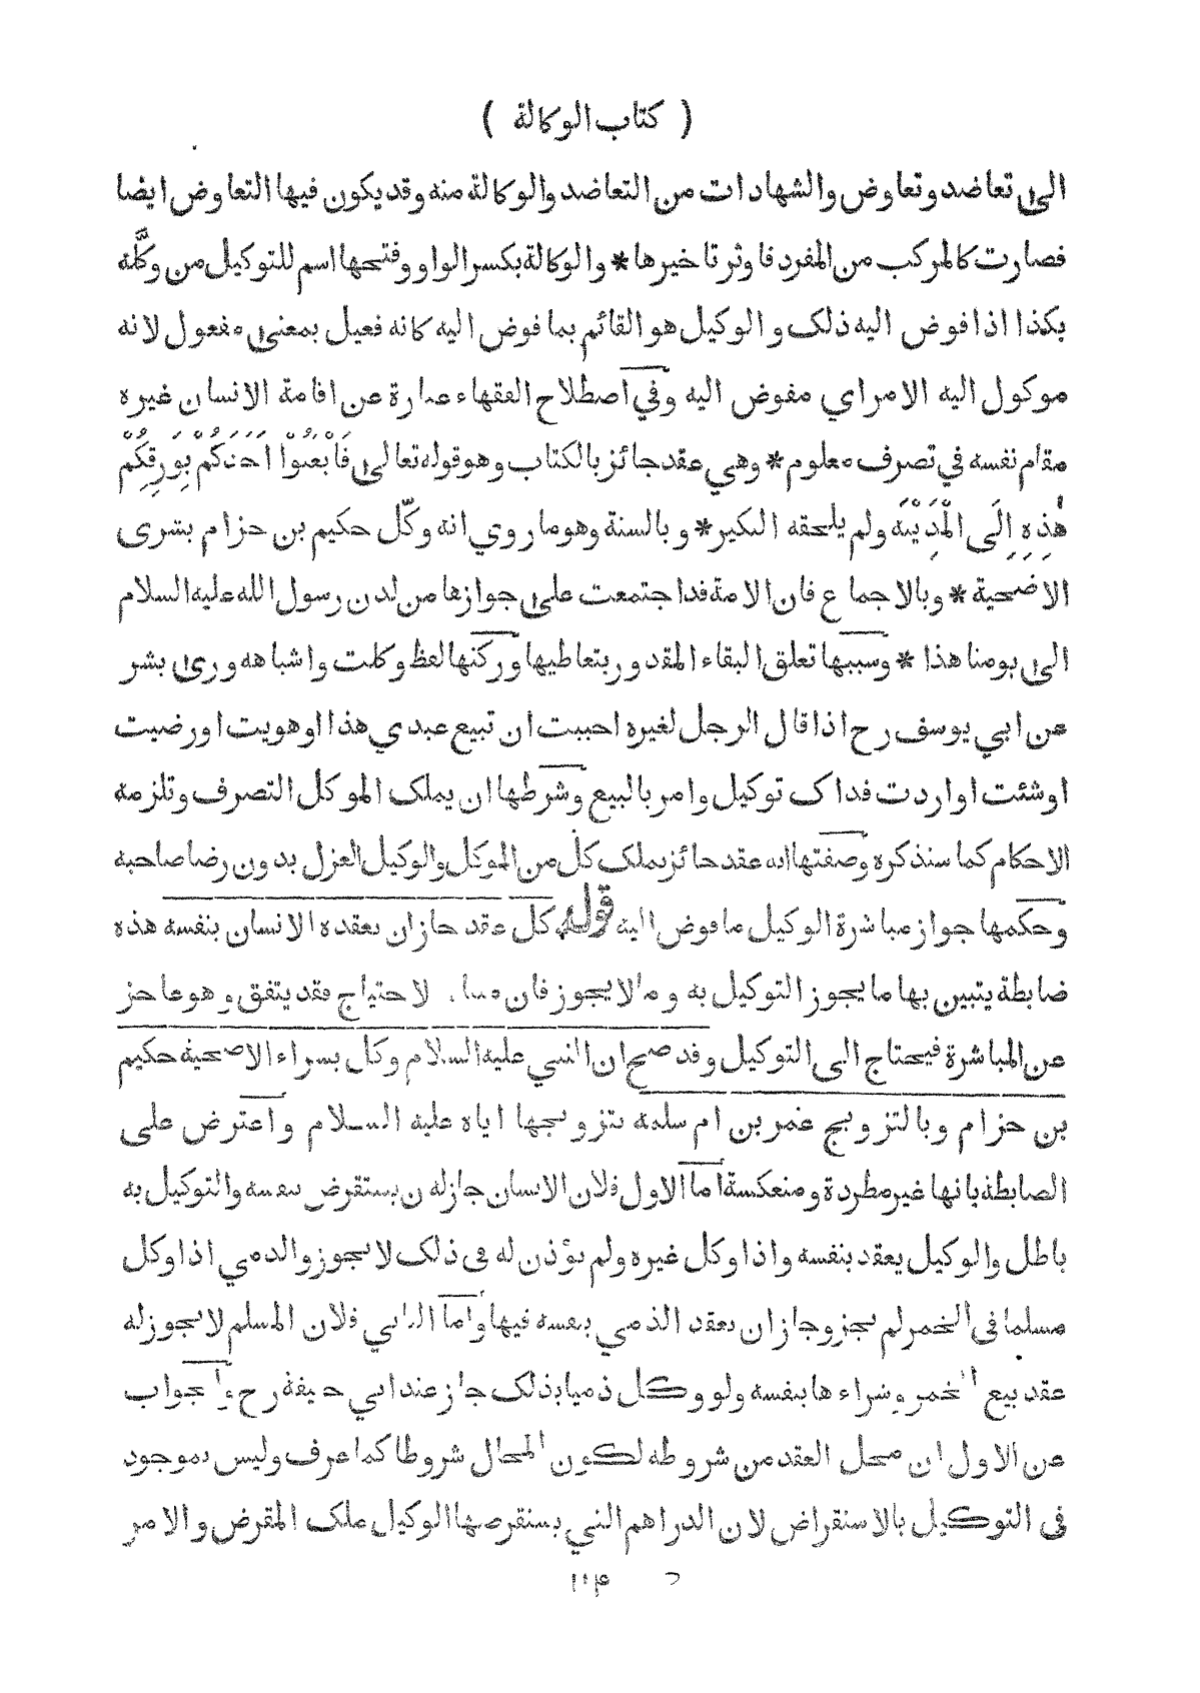 ( كتاب الوكالة )
الى تعاضد وتعاوض والشهادات من التعاضد والوكالة منه وقد يكون فيها التعاوض ايضا
فصارت كالمركب من المفرد فاوثر تاخيرها * والوكالة بكسر الواو وفتحها اسم للتوكيل من وكّله
بكذا اذا فوض اليه ذلك والوكيل هو القائم بما فوض اليه كانه فعيل بمعنى مفعول لانه
موكول اليه الامر اي مفوض اليه وفي اصطلاح الفقهاء عبارة عن اقامة الانسان غيره
مقام نفسه في تصرف معلوم * وهي عقد جائز بالكتاب وهو قوله تعالى فَابْعَثُوْا اَحَدَكُمْ بِوَرِقِكُمْ
هٰذِهِ اِلَى الْمَدِيْنَةِ ولم يلحقه النكير * وبالسنة وهو ما روي انه وكّل حكيم بن حزام بشرى
الاضحية * وبالاجماع فان الامة قد اجتمعت على جوازها من لدن رسول الله عليه السلام
الى يومنا هذا * وسببها تعلق البقاء المقدور بتعاطيها وركنها لفظ وكلت واشباهه وروى بشر
عن ابي يوسف رح اذا قال الرجل لغيره احببت ان تبيع عبدي هذا او هويت او رضيت
او شئت او اردت فذاك توكيل وامر بالبيع وشرطها ان يملك الموكل التصرف وتلزمه
الاحكام كما سنذكره وصفتها انه عقد جائز يملك كل من الموكل والوكيل العزل بدون رضا صاحبه
وحكمها جواز مباشرة الوكيل ما فوض اليه قوله كل عقد جاز ان يعقده الانسان بنفسه هذه
ضابطة يتبين بها ما يجوز التوكيل به وما لا يجوز فان لاحتياج فقد يتفق وهو عاجز
عن المباشرة فيحتاج الى التوكيل وقد صح ان النبي عليه السلام وكل بشراء الاضحية حكيم
بن حزام وبالتزويج عمر بن ام سلمة بتزويجها اياه عليه السلام واعترض على
الضابطة بانها غير مطردة ومنعكسة اما الاول فلان الانسان جاز له ن يستقرض بنفسه والتوكيل به
باطل والوكيل يعقد بنفسه واذا وكل غيره ولم يؤذن له فى ذلك لا يجوز والذمي اذا وكل
مسلما فى الخمر لم يجز وجاز ان يعقد الذمي بنفسه فيها واما الثاني فلان المسلم لا يجوز له
عقد بيع الخمر وشراءها بنفسه ولو وكل ذميا بذلك جاز عند ابي حنيفة رح والجواب
عن الاول ان محل العقد من شروطه لكون المحال شروطا كما عرف وليس بموجود
فى التوكيل بالاستقراض لان الدراهم التي يستقرضها الوكيل ملك المقرض والامر